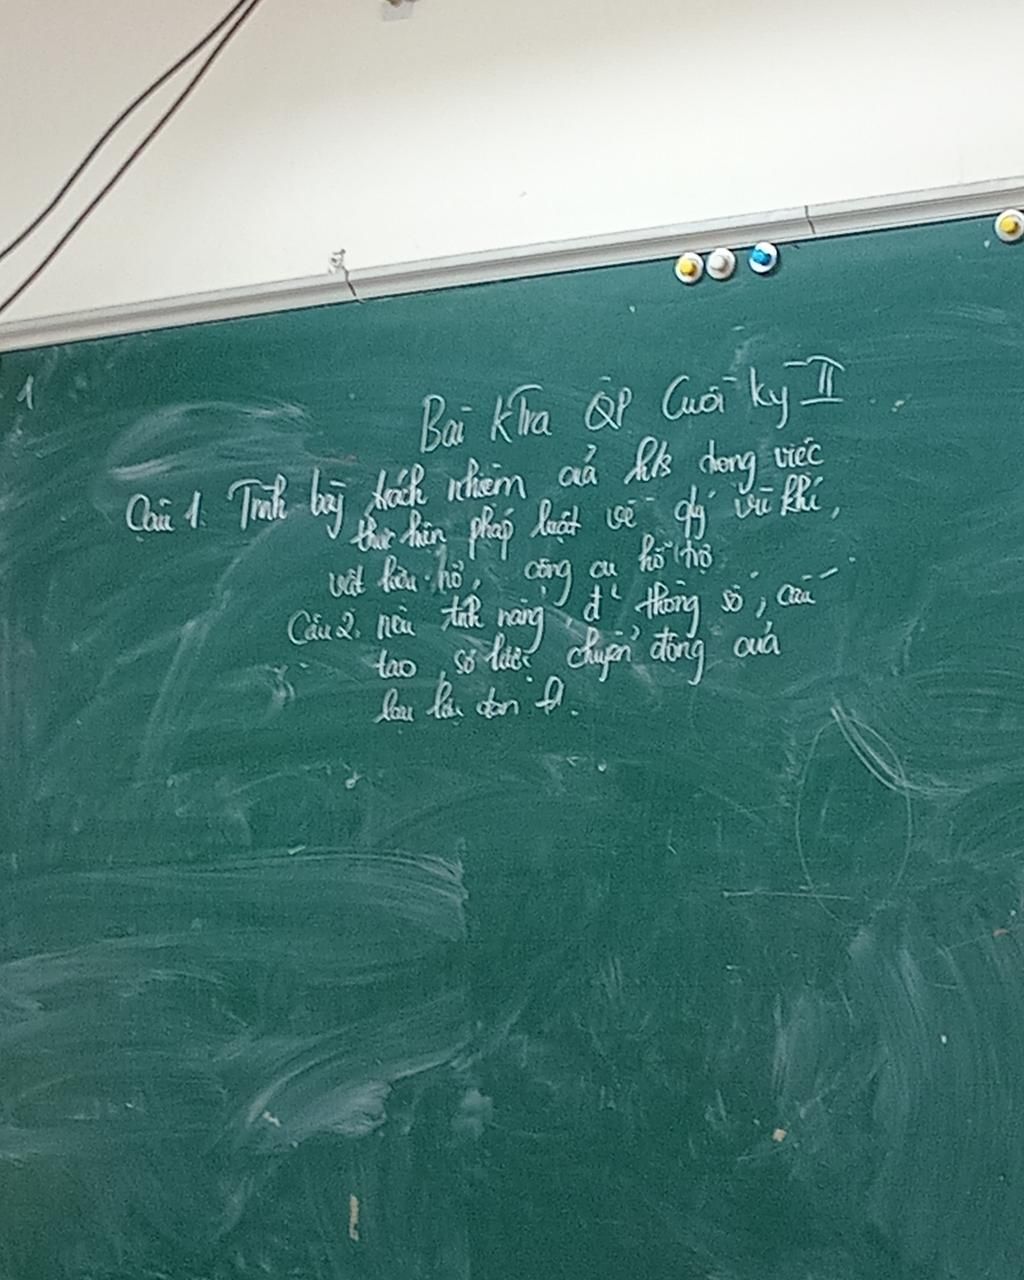 1
Bài KTra QP Cuối kỳ II
Câu 1. Trình bày trách nhiệm của h/s trong việc
thực hiện pháp luật về qlý vũ khí,
vật liệu nổ, công cụ hỗ trợ
Câu 2. nêu tính năng, thông số, cấu
tạo, sơ lược chuyển động của
lựu đạn